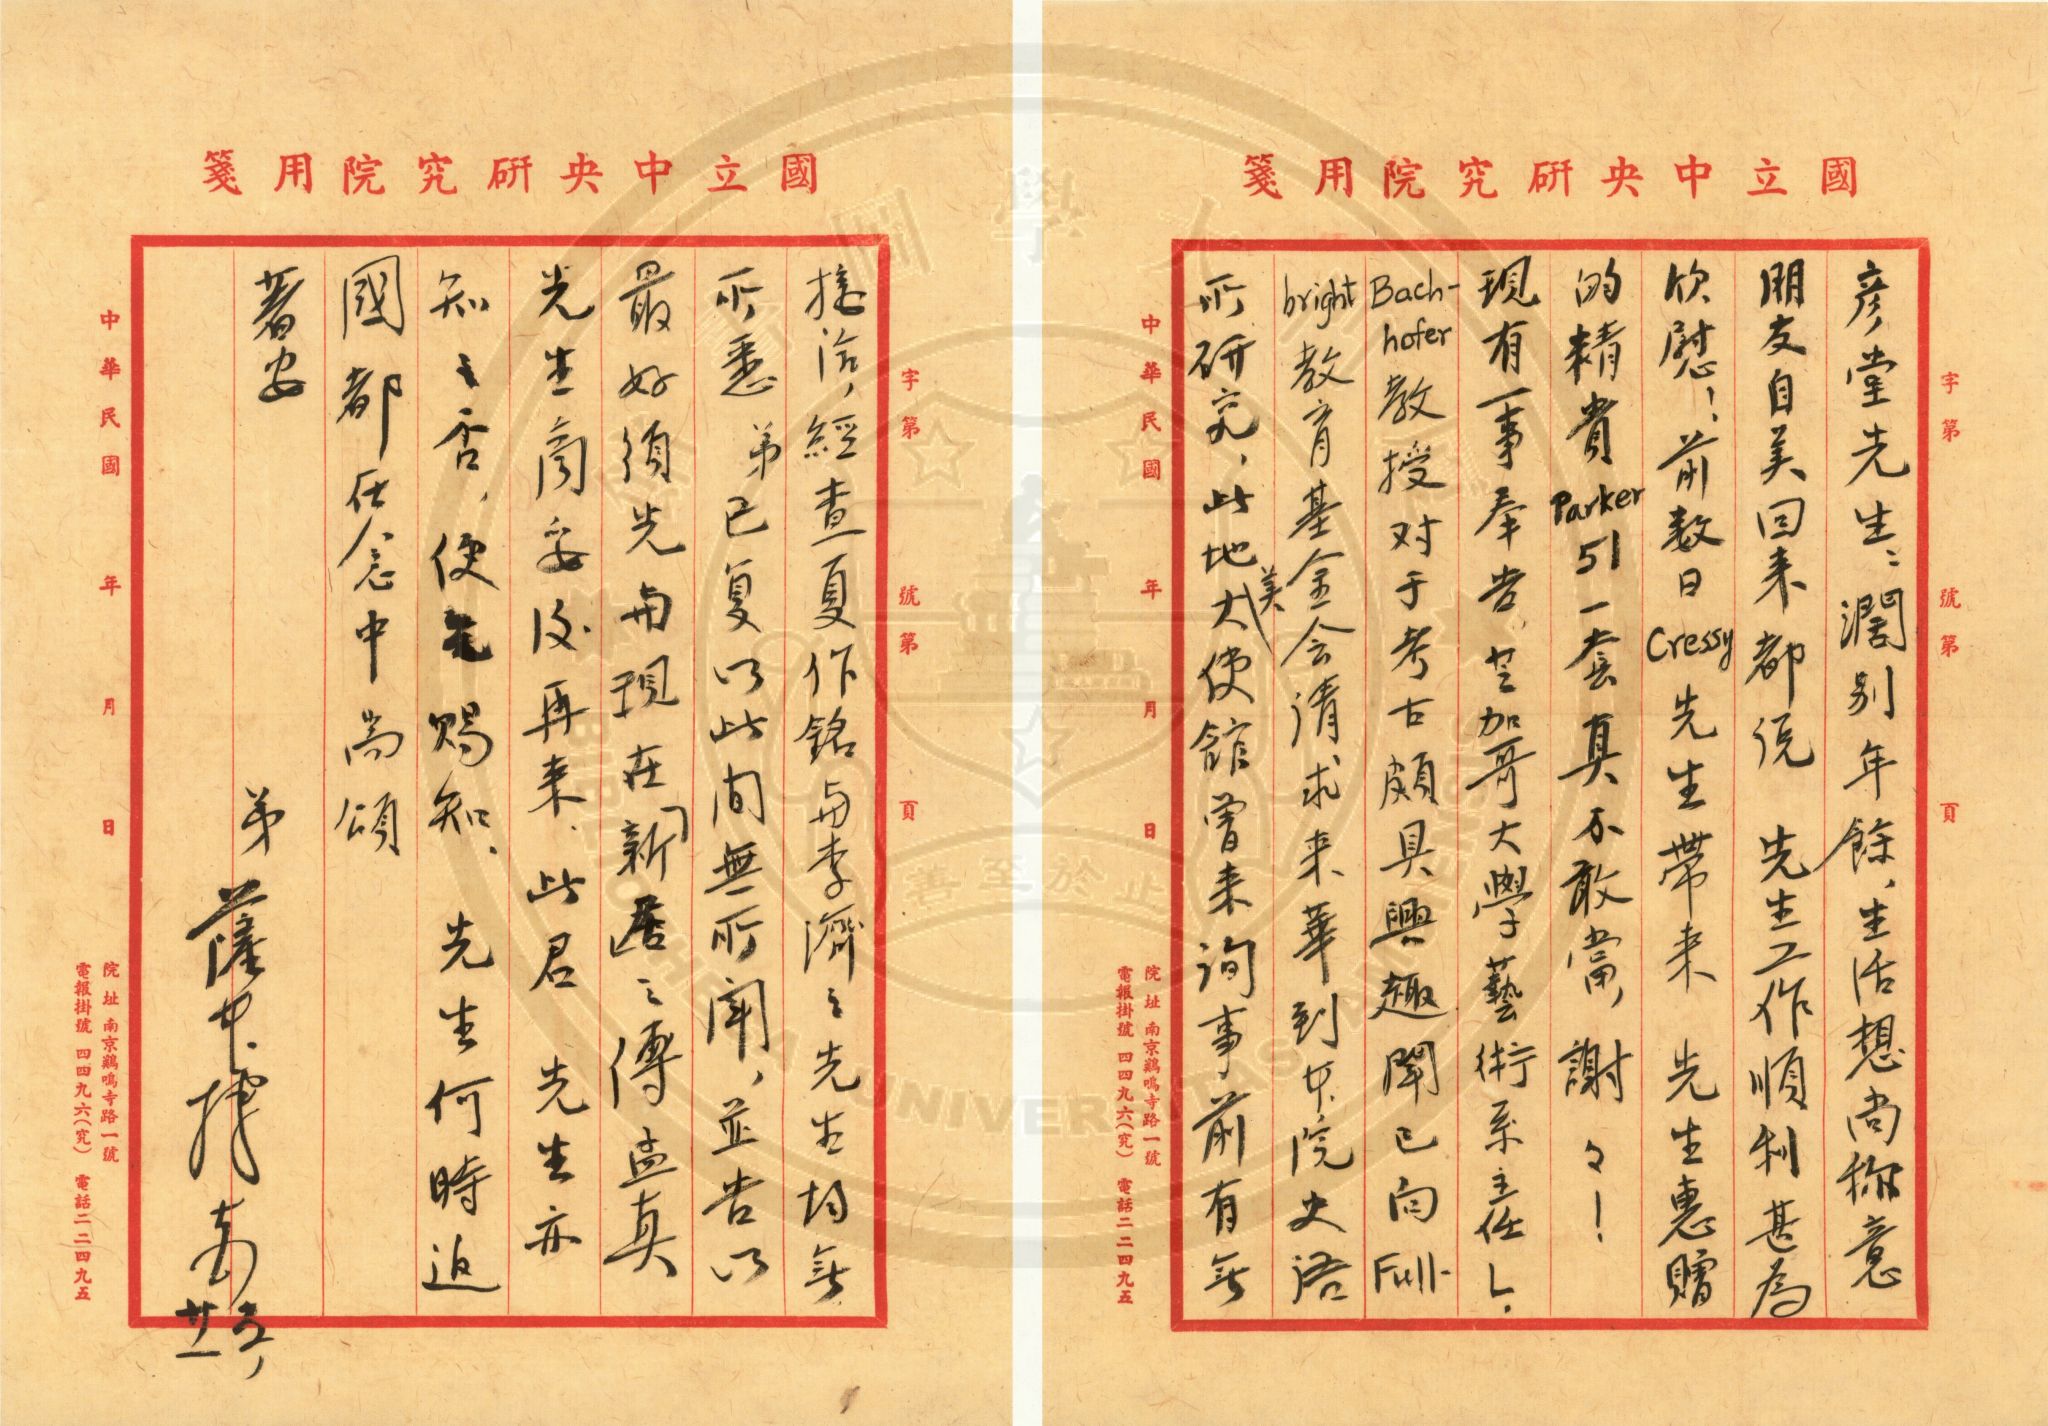 國立中央研究院用箋
字第 號第 頁
彥堂先生：濶別年餘，生活想尚稱意
朋友自美回来都说 先生工作順利甚為
欣慰！前数日Cressy先生带来 先生惠贈
的精貴Parker 51一套真不敢當，謝々！
現有一事奉告，芝加哥大學藝術系主任L.
Bachhofer教授对于考古頗具興趣聞已向Full-
bright教育基金会請求来華到本院史語
所研究，此地美大使館曾来詢事前有無
中華民國 年 月 日
院址 南京鷄鳴寺路一號
電報掛號 四四九六（究） 電話二二四九五
國立中央研究院用箋
字第 號第 頁
接洽，經查夏作銘与李濟之先生均無
所悉 弟已复以此间無所聞，並告以
最好須先与現在「新居」之傅孟真
先生商妥後再来，此君 先生亦
知之否，便乞赐知。先生何時返
國都在念中耑頌
著安
弟
薩本棟
中華民國 年 月 日
院址 南京鷄鳴寺路一號
電報掛號 四四九六（究） 電話二二四九五